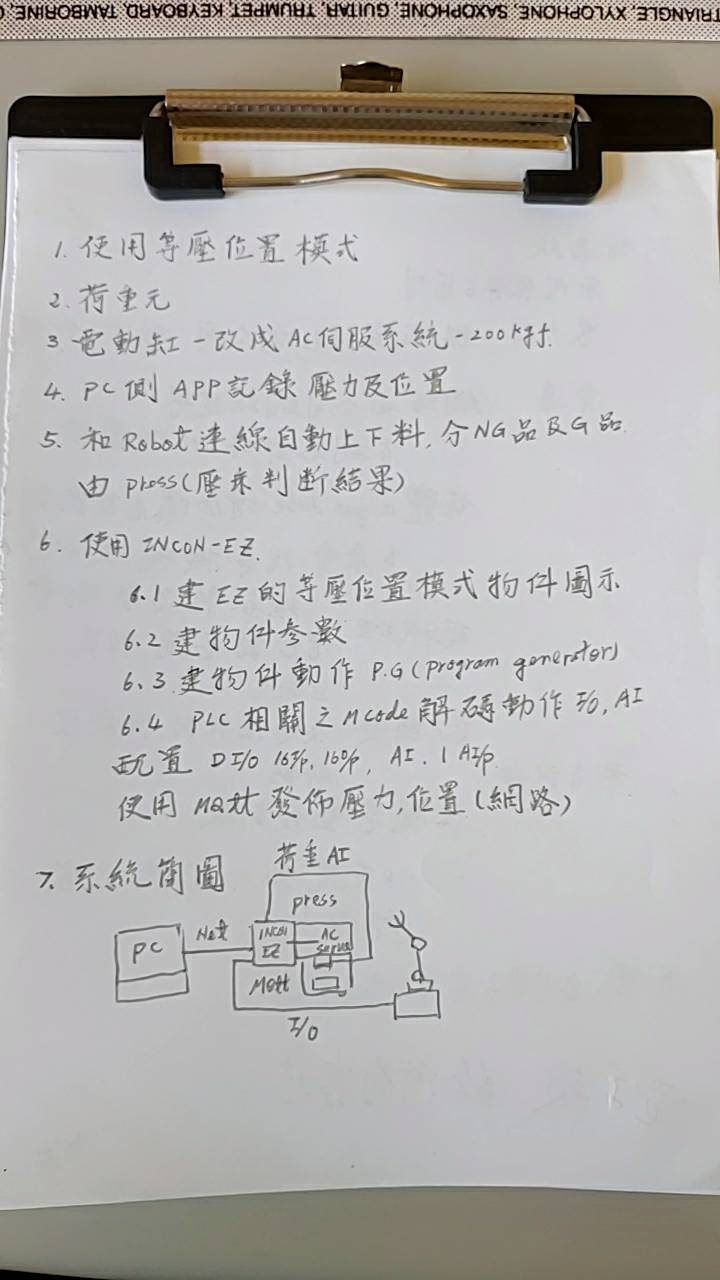 TRIANGLE, XYLOPHONE, SAXOPHONE, GUITAR, TRUMPET, KEYBOARD, TAMBORINE,
1. 使用等壓位置模式
2. 荷重元
3 電動缸-改成AC伺服系統-200kgf.
4. PC側 APP記錄壓力及位置
5. 和Robot連線自動上下料,分NG品及G品
由press(壓床判斷結果)
6. 使用INCON-EZ.
6.1 建EZ的等壓位置模式物件圖示
6.2 建物件參數
6.3 建物件動作P.G(program generator)
6.4 PLC相關之Mcode解碼動作I/O, AI
配置 DI/O 16I/p, 16O/p, AI. 1 AI/p.
使用 MQtt 發佈壓力,位置(網路)
7. 系統簡圖
荷重AI
press
PC
Net
INCON
EZ
AC
servo
MQtt
I/O